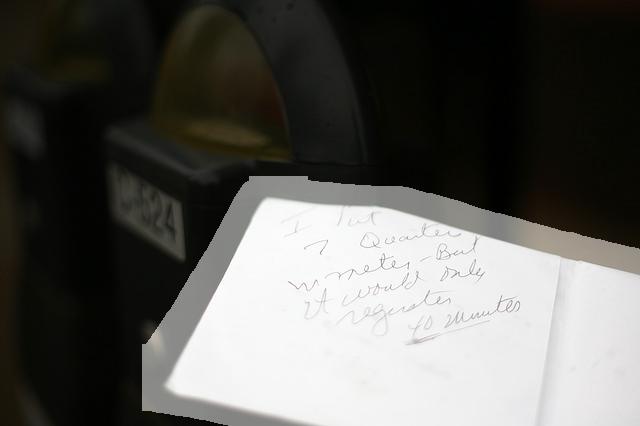 I Put
7 Quarters
in meter - But
it would only
register
40 minutes